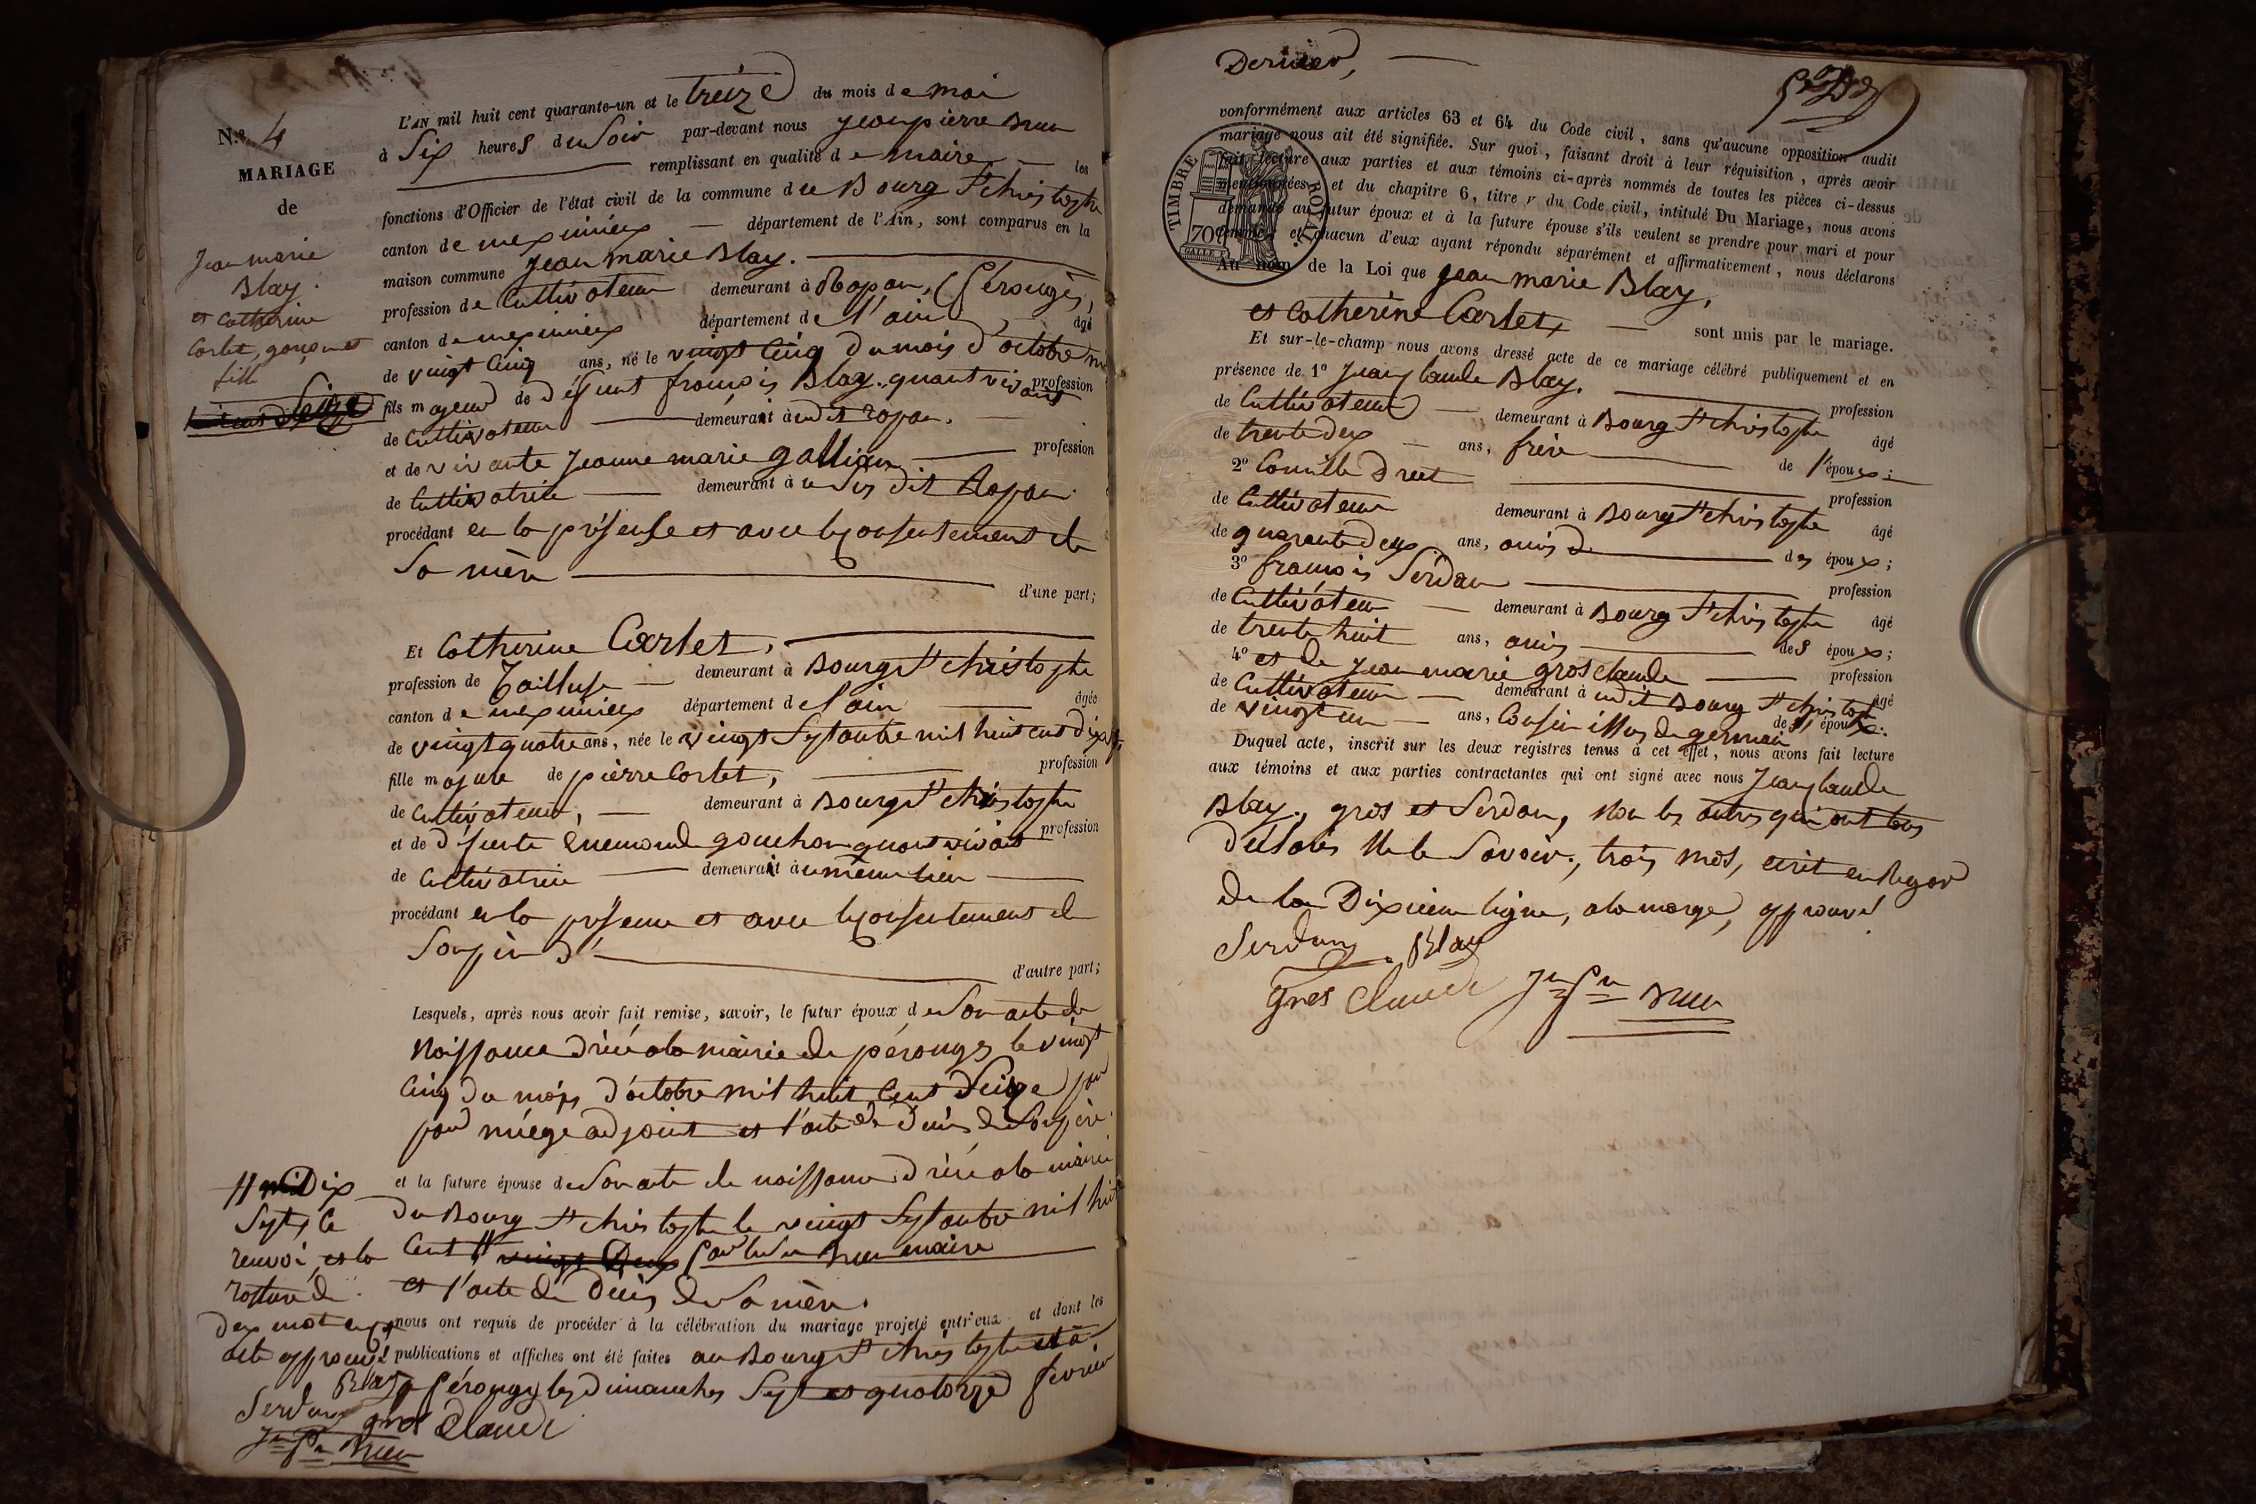 N.º 4
MARIAGE
de
Jean marie
Blay.
et Catherine
Carlet, garçon et
fille
L'AN mil huit cent quarante-un et le treize du mois de mai
à Six heures du Soir par-devant nous Jean pierre
remplissant en qualité de maire les
fonctions d'Officier de l'état civil de la commune de Bourg St christophe
canton de meximieux département de l'Ain, sont comparus en la
maison commune Jean marie Blay.
profession de Cultivateur demeurant à Rapan, (Pérouges,
canton de meximieux département de l'ain âgé
de vingt Cinq ans, né le vingt Cinq du mois d'octobre
fils majeur de défunt françois Blay. quant vivant profession
de Cultivateur demeurait à udit rapan.
et de vivante Jeanne marie gallian profession
de Cultivatrice demeurant à udit Rapan
procédant en la présense et avec le Consentement de
Sa mère d'une part;
Et Catherine Carlet,
profession de Tailluse demeurant à Bourg St christophe
canton de meximieux département de l'ain âgée
de vingt quatre ans, née le vingt Septembre mil huit cent dix
fille majure de pierre Carlet, profession
de Cultivateur, demeurant à Bourg St christophe
et de défunte Enemonde gouchon quant vivait profession
de Cultivatrice demeurait à u même lieu
procédant en la présence et avec le Consentement de
Son père d'autre part;
Lesquels, après nous avoir fait remise, savoir, le futur époux de Son acte de
Naissance Dréé a la mairie de pérouges le vingt
Cinq du mois d'octobre mil huit Cent Seize par
miége adjoint et l'acte de décès de Son père.
et la future épouse de Son acte de naissance Dréé a la mairie
du Bourg St christophe le vingt Septembre mil huit
Cent // vingt Deux par maire
et l'acte de Décès de Sa mère.
nous ont requis de procéder à la célébration du mariage projeté entr'eux et dont les
publications et affiches ont été faites au Bourg St christophe et à
Pérouges les dimanches Sept et quatorze février
// Dix
Sept, Ce
renvoi, et la
rature de
deux mot
acte approuvé
Blay
Serdan gros Claude
Jn Pre
Dernier,
conformément aux articles 63 et 64 du Code civil, sans qu'aucune opposition audit
mariage nous ait été signifiée. Sur quoi, faisant droit à leur réquisition, après avoir
fait lecture aux parties et aux témoins ci-après nommés de toutes les pièces ci-dessus
mentionnées, et du chapitre 6, titre v du Code civil, intitulé Du Mariage, nous avons
demandé au futur époux et à la future épouse s'ils veulent se prendre pour mari et pour
femme; et chacun d'eux ayant répondu séparément et affirmativement, nous déclarons
Au nom de la Loi que Jean marie Blay,
et Catherine Carlet, sont unis par le mariage.
TIMBRE ROYAL
70c
Et sur-le-champ nous avons dressé acte de ce mariage célébré publiquement et en
présence de 1º Jean Claude Blay. profession
de Cultivateur demeurant à Bourg St christophe âgé
de trente deux ans, frère de l'époux;
2º Camille Druet profession
de Cultivateur demeurant à Bourg St christophe âgé
de quarante deux ans, amis des époux;
3º françois Serdan profession
de Cultivateur demeurant à Bourg St christophe âgé
de trente huit ans, amis des époux;
4º et de Jean marie gros claude profession
de Cultivateur demeurant à udit Bourg St christophe âgé
de vingt un ans, Cousin issus de germain de époux.
Duquel acte, inscrit sur les deux registres tenus à cet effet, nous avons fait lecture
aux témoins et aux parties contractantes qui ont signé avec nous Jean Claude
Blay., gros et Serdan, Non les autres qui ont tous
déclarés Ne le Savoir., trois mots, écrit en Regard
de la Dixieme ligne, a la marge, approuvé
Serdan Blay
gros Claude Jn Pre